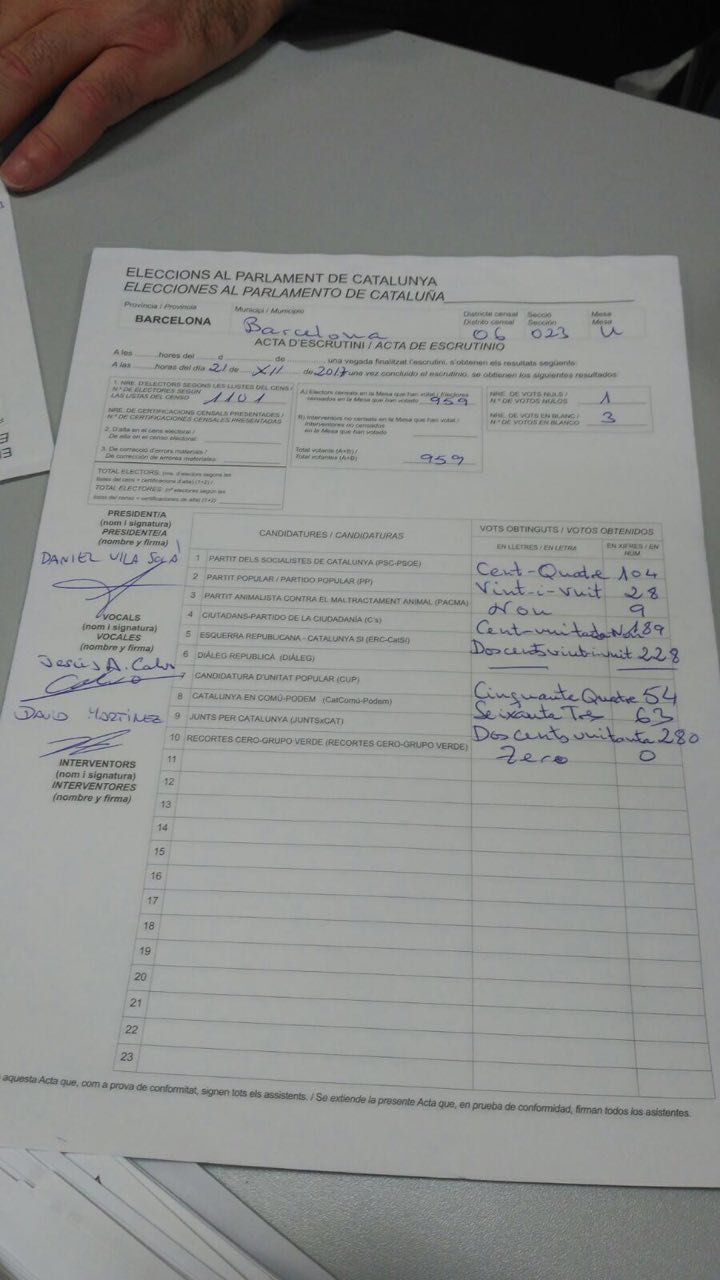 ELECCIONS AL PARLAMENT DE CATALUNYA
ELECCIONES AL PARLAMENTO DE CATALUÑA
Província / Provincia
BARCELONA
Municipi / Municipio
Barcelona
Districte censal
Distrito censal
06
Secció
Sección
023
Mesa
Mesa
U
ACTA D'ESCRUTINI / ACTA DE ESCRUTINIO
A les ........hores del .....d ............. de ............, una vegada finalitzat l'escrutini, s'obtenen els resultats següents:
A las ........ horas del día 21 de XII de 2017 una vez concluido el escrutinio, se obtienen los siguientes resultados:
1. NRE. D'ELECTORS SEGONS LES LLISTES DEL CENS /
N.º DE ELECTORES SEGÚN
LAS LISTAS DEL CENSO 1101
NRE. DE CERTIFICACIONS CENSALS PRESENTADES /
N.º DE CERTIFICACIONES CENSALES PRESENTADAS
2. D'alta en el cens electoral /
De alta en el censo electoral:
3. De correcció d'errors materials /
De corrección de errores materiales:
TOTAL ELECTORS: (nre. d'electors segons les
llistes del cens + certificacions d'alta) (1+2) /
TOTAL ELECTORES: (nº electores según las
listas del censo + certificaciones de alta) (1+2)
A) Electors censats en la Mesa que han votat / Electores
censados en la Mesa que han votado 959
B) Interventors no censats en la Mesa que han votat /
Interventores no censados
en la Mesa que han votado
Total votants (A+B) /
Total votantes (A+B) 959
NRE. DE VOTS NULS /
N.º DE VOTOS NULOS 1
NRE. DE VOTS EN BLANC /
N.º DE VOTOS EN BLANCO 3
PRESIDENT/A
(nom i signatura)
PRESIDENTE/A
(nombre y firma)
DANIEL VILA SOLÀ
VOCALS
(nom i signatura)
VOCALES
(nombre y firma)
Jesús A. Calvo
Calvo
DAVID MARTÍNEZ
INTERVENTORS
(nom i signatura)
INTERVENTORES
(nombre y firma)
CANDIDATURES / CANDIDATURAS
VOTS OBTINGUTS / VOTOS OBTENIDOS
EN LLETRES / EN LETRA
EN XIFRES / EN NÚM
1 PARTIT DELS SOCIALISTES DE CATALUNYA (PSC-PSOE) Cent-Quatre 104
2 PARTIT POPULAR / PARTIDO POPULAR (PP) Vint-i-vuit 28
3 PARTIT ANIMALISTA CONTRA EL MALTRACTAMENT ANIMAL (PACMA) Nou 9
4 CIUTADANS-PARTIDO DE LA CIUDADANÍA (C's) Cent-vuitada Nou 189
5 ESQUERRA REPUBLICANA - CATALUNYA SÍ (ERC-CatSí) Doscents vint-i-vuit 228
6 DIÀLEG REPUBLICÀ (DIÀLEG)
7 CANDIDATURA D'UNITAT POPULAR (CUP) Cinquanta Quatre 54
8 CATALUNYA EN COMÚ-PODEM (CatComú-Podem) Seixanta Tres 63
9 JUNTS PER CATALUNYA (JUNTSxCAT) Doscents vuitanta 280
10 RECORTES CERO-GRUPO VERDE (RECORTES CERO-GRUPO VERDE) Zero 0
11
12
13
14
15
16
17
18
19
20
21
22
23
aquesta Acta que, com a prova de conformitat, signen tots els assistents. / Se extiende la presente Acta que, en prueba de conformidad, firman todos los asistentes.